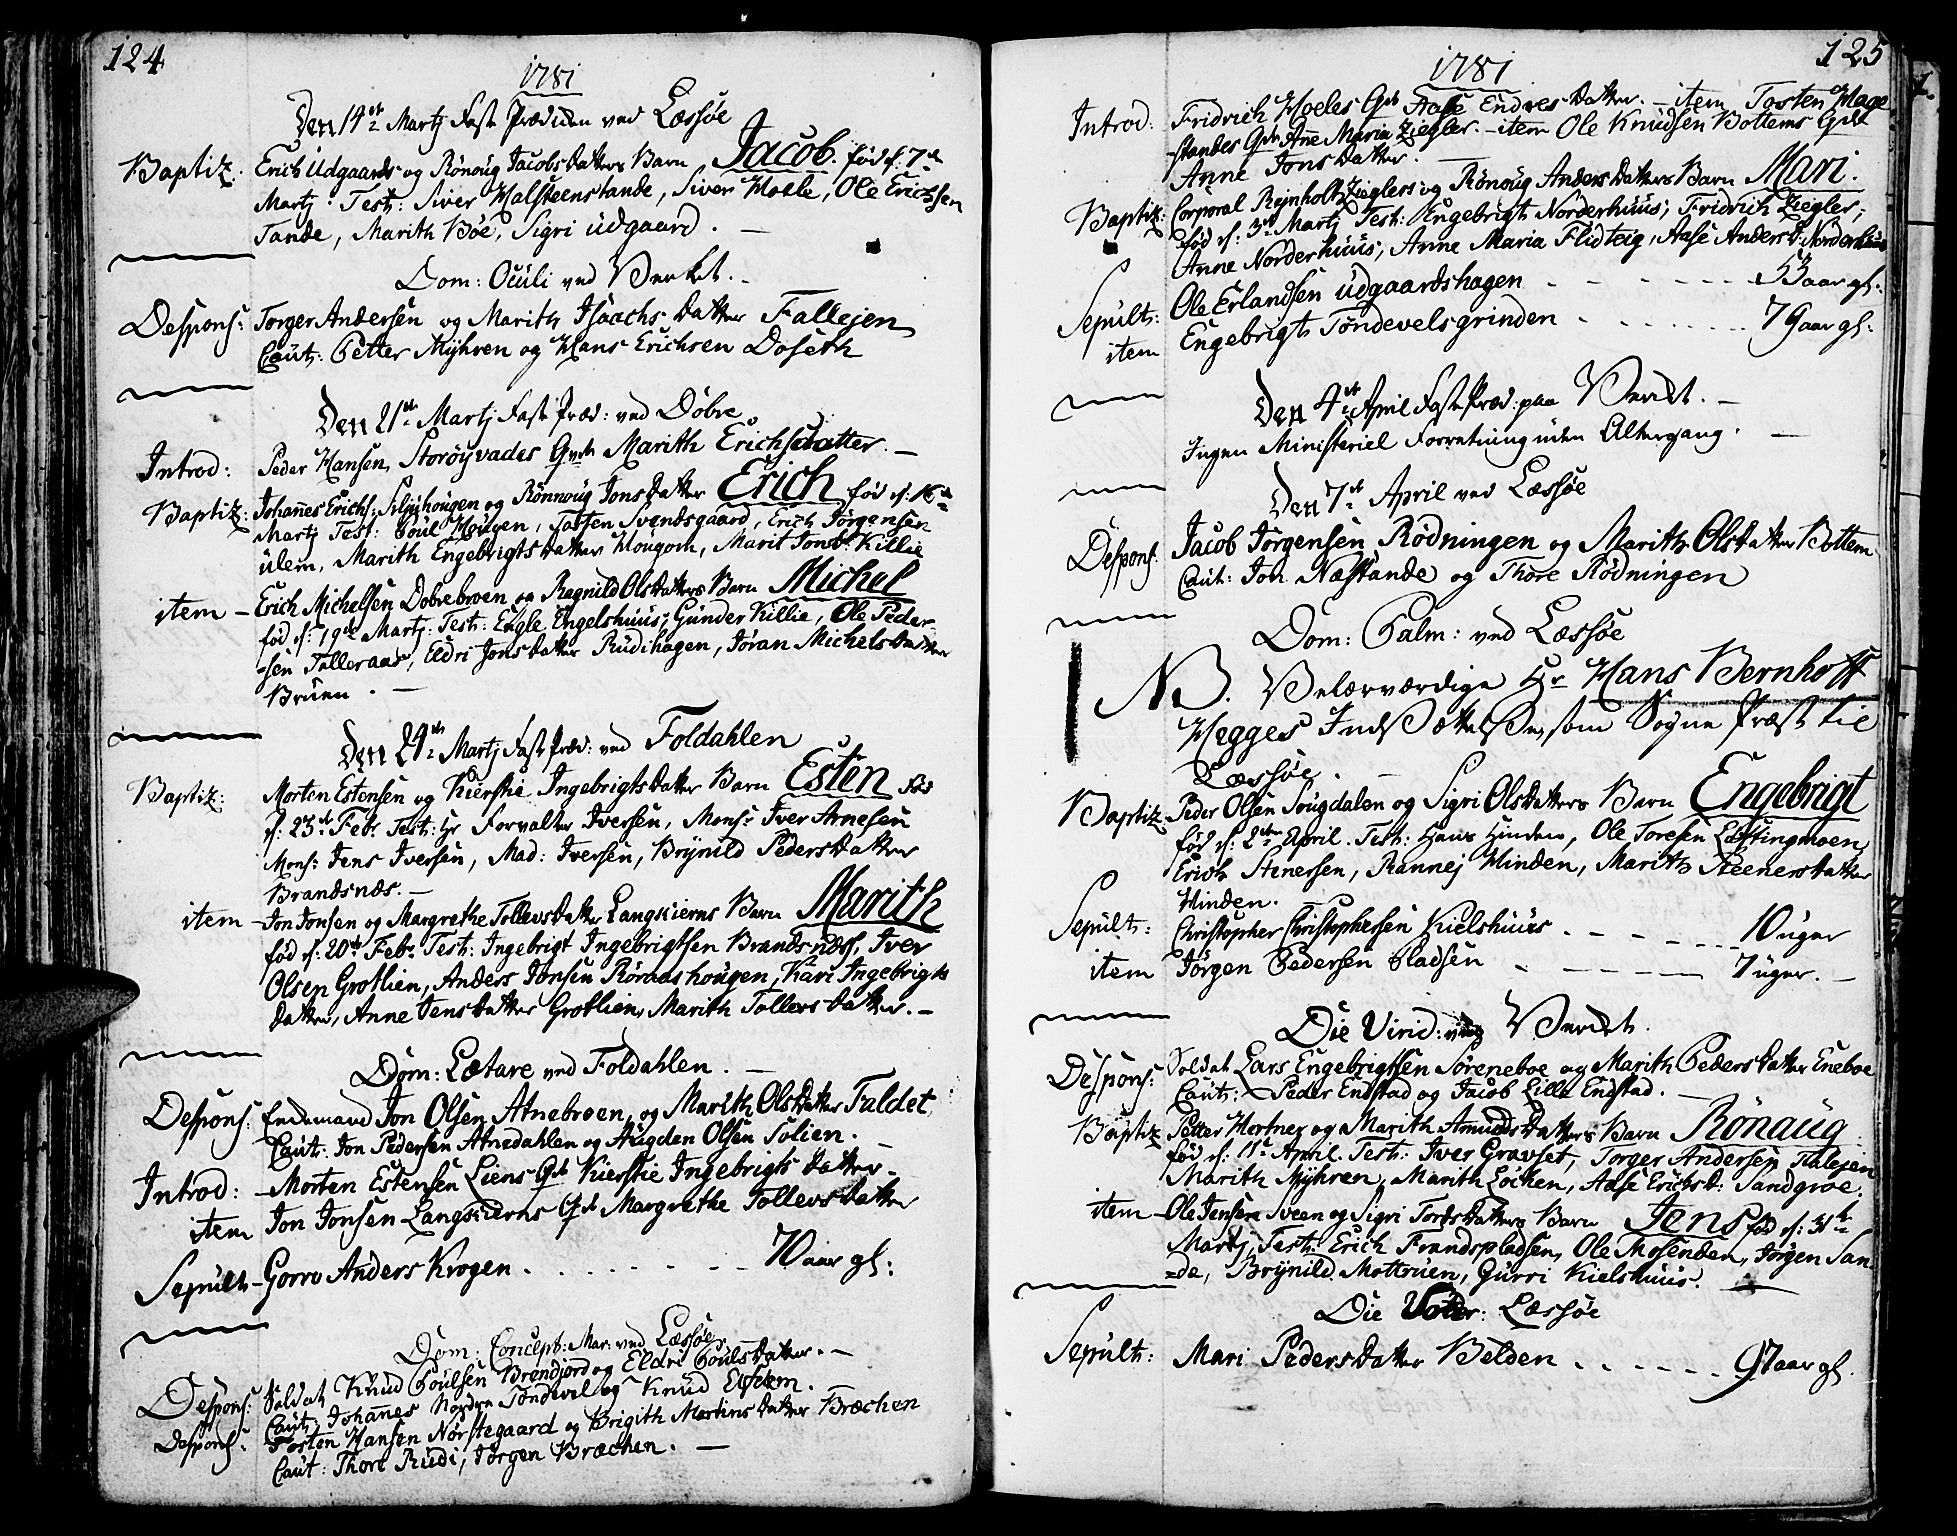 124
1781
Den 14de Martj Fast Prædiken ved Læssøe
Baptiz: Erich Udgaards og Rönoug Jacobsdatters Barn Jacob. fød d: 7de
Martj. Test: Siver Halsteenstande, Siver Hoele, Ole Erichsen
Tande, Marith Böe, Sigri Udgaard. —
Dom: Oculi ved Verket. —
Despons: Torger Andersen og Marith Isaachs datter Fallejen
Caut: Petter Mÿhren og Hans Erichsen Doseth
Den 21de Martj Fast Præd: ved Dobre.
Introd: Peder Hansen Storöyvades Qvde Marith Erichsdatter. —
Baptiz: Johannes Erichs: hougen og Rönnoug Jonsdatter Erich fød d: 16de
Martj Test: Poul Hougen, Tosten Svendsgaard, Erich Jörgensen
Ulem, Marith Engebrigtsdatter Hougom, Marit Jonsd: Killie
item — Erich Michelsen Dobrebroen og Ragnild Olsdatters Barn Michel
fød d: 19de Martj: Test: Engle Engelshuus, Gunder Killie, Ole Peder
-sen Talleraas, Eldri Jonsdatter Rudihagen, Jöran Michelsdatter
Bruen. —
Den 29de Martj Fast Præd: ved Foldahlen
Baptiz: Morten Estensen og Kierstie Ingebrigtsdatter Barn Esten fød
d: 23de Febr. Test: Hr Forvalter Iversen, Monsr Iver Arnesen
Monsr: Jens Iversen, Mad: Iversen, Brÿnild Pedersdatter
Brandsnæs. —
item — Jon Jonsen og Margrethe Tollevsdatter Langkierns Barn Marith
fød d: 20de Febr. Test: Ingebrigt Ingebrigtsen Brandsnæss, Iver
Olsen Grotlien, Anders Jonsen Röraashougen, Kari Ingebrigts
datter, Anne Jensdatter Grotlien, Marith Tollevsdatter. —
Dom: Lætare ved Foldahlen. —
Despons: Enkemand Jon Olsen Atnebroen og Marith Olsdatter Faldet
Caut: Jon Pedersen Atnedahlen og Augden Olsen Solien. —
Introd: — Morten Estensen Liens Qvde Kierstie Ingebrigtsdatter —
item Jon Jonsen Langkierns Qvde Margrethe Tollevsdatter
Sepult — Gorro Anders Krogen . . . . . . . 70 aar gl:
Dom: Concept: Mar: ved Læssøe
Despons: Soldat Knud Poulsen Brendjord og Eldri Poulsdatter. —
Caut: Johannes Nordre Töndevel og Knud Elstem.
Despons: Tosten Hansen Norstegaard og Brigith Martinsdatter Bræchen
Caut: Thore Rudi, Jörgen Bræchen. —
125
1781
Introd: Fridrich Hoeles Qvde Aase Endresdatter. — item Tosten Hage
standes Qvde Anne Maria Ziegler. — item Ole Knudsen Bottems Qvde
Anne Jonsdatter. —
Baptiz: Corporal Rejnholt Zieglers og Rönoug Andersdatters Barn Mari.
fød d: 3de Martj Test: Engebrigt Norderhuus, Fridrich Ziegler,
Anne Norderhuus, Anne Maria Flidteig, Aase Andersd: Norderhuus
Sepult: Ole Erlandsen Udgaardshagen . . . . . . 53 aar gl:
item Engebrigt Töndevelsgrinden . . . . . . 79 aar gl:
Den 4de April Fast Præd: paa Verket. —
Ingen Ministeriel Forretning uden Altergang. —
Den 7de April ved Læssøe
Despons: Jacob Jörgensen Rödningen og Marith Olsdatter Bottem
Caut: Jon Næstande og Thore Rödningen
Dom: Palm: ved Læssøe
NB. Velærværdige Hr Hans Bernhoft
Hegges Indsættelse som Sogne Præst til
Læssøe. —
Baptiz: Peder Olsen Sougdalen og Sigri Olsdatters Barn Engebrigt
fød d: 2den April. Test: Hans Hinden, Ole Toresen Lestingmoen
Erich Stenersen, Rannej Hinden, Marith Steenersdatter
Hinden. —
Sepult: Christopher Christophersen Kielshuus . . . . . . 10 uger
item Jörgen Pedersen Pladsen . . . . . 7 uger. —
Die Virid: ved Verket.
Despons: Soldat Lars Engebrigtsen Söreneboe og Marith Pedersdatter Eneboe
Caut: Peder Endstad og Jacob Lille Endstad. —
Baptiz Petter Hortnes og Marith Amundsdatters Barn Rönaug
fød d: 11te April. Test: Iver Gravset, Torger Andersen Falejen
Marith Mÿhren, Marith Löcken, Aase Erichsd: Sandgroe.
item — Ole Jensen Sveen og Sigri Tordsdatters Barn Jens fød d: 31te
Martj, Test: Erich Frandspladsen, Ole Mosenden, Jörgen San
=de, Brÿnild Mottruen, Gurri Kielshuus. —
Die Læssøe
Sepult: Mari Pedersdatter Belden . . . . . 97 aar gl.